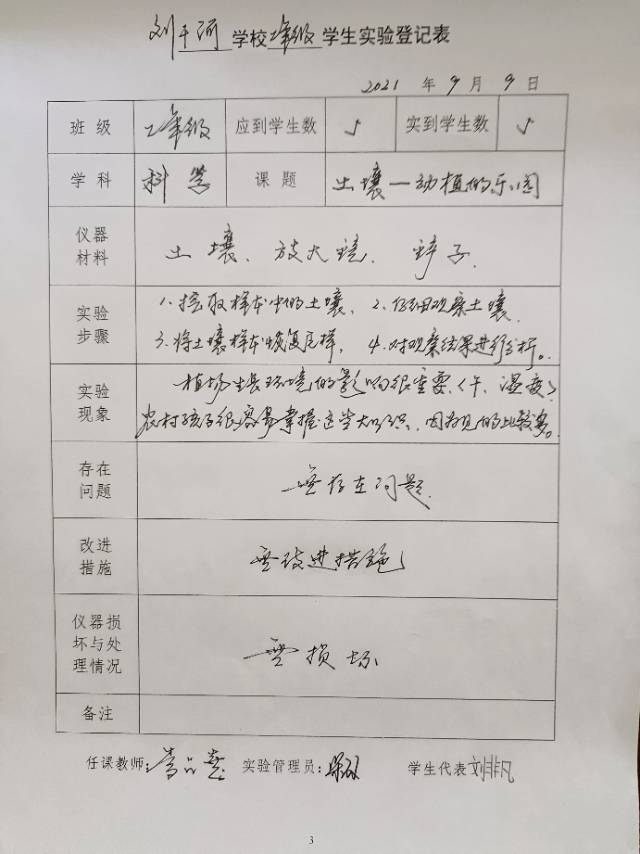 刘干河 学校 二年级 学生实验登记表
2021 年 9 月 9 日
班 级 二年级 应到学生数 5 实到学生数 5
学 科 科学 课 题 土壤一动植的乐园
仪器
材料
土壤、放大镜、铲子.
实验
步骤
1.挖取样本中的土壤、 2.仔细观察土壤.
3.将土壤样本恢复原样, 4.对观察结果进行分析。
实验
现象
植物生长环境的影响很重要(干、湿度)
农村孩子很容易掌握这些知识、因为见的比较多。
存在
问题
无存在问题.
改进
措施
无改进措施
仪器损
坏与处
理情况
无损坏
备注
任课教师: 实验管理员: 学生代表 刘非凡
3